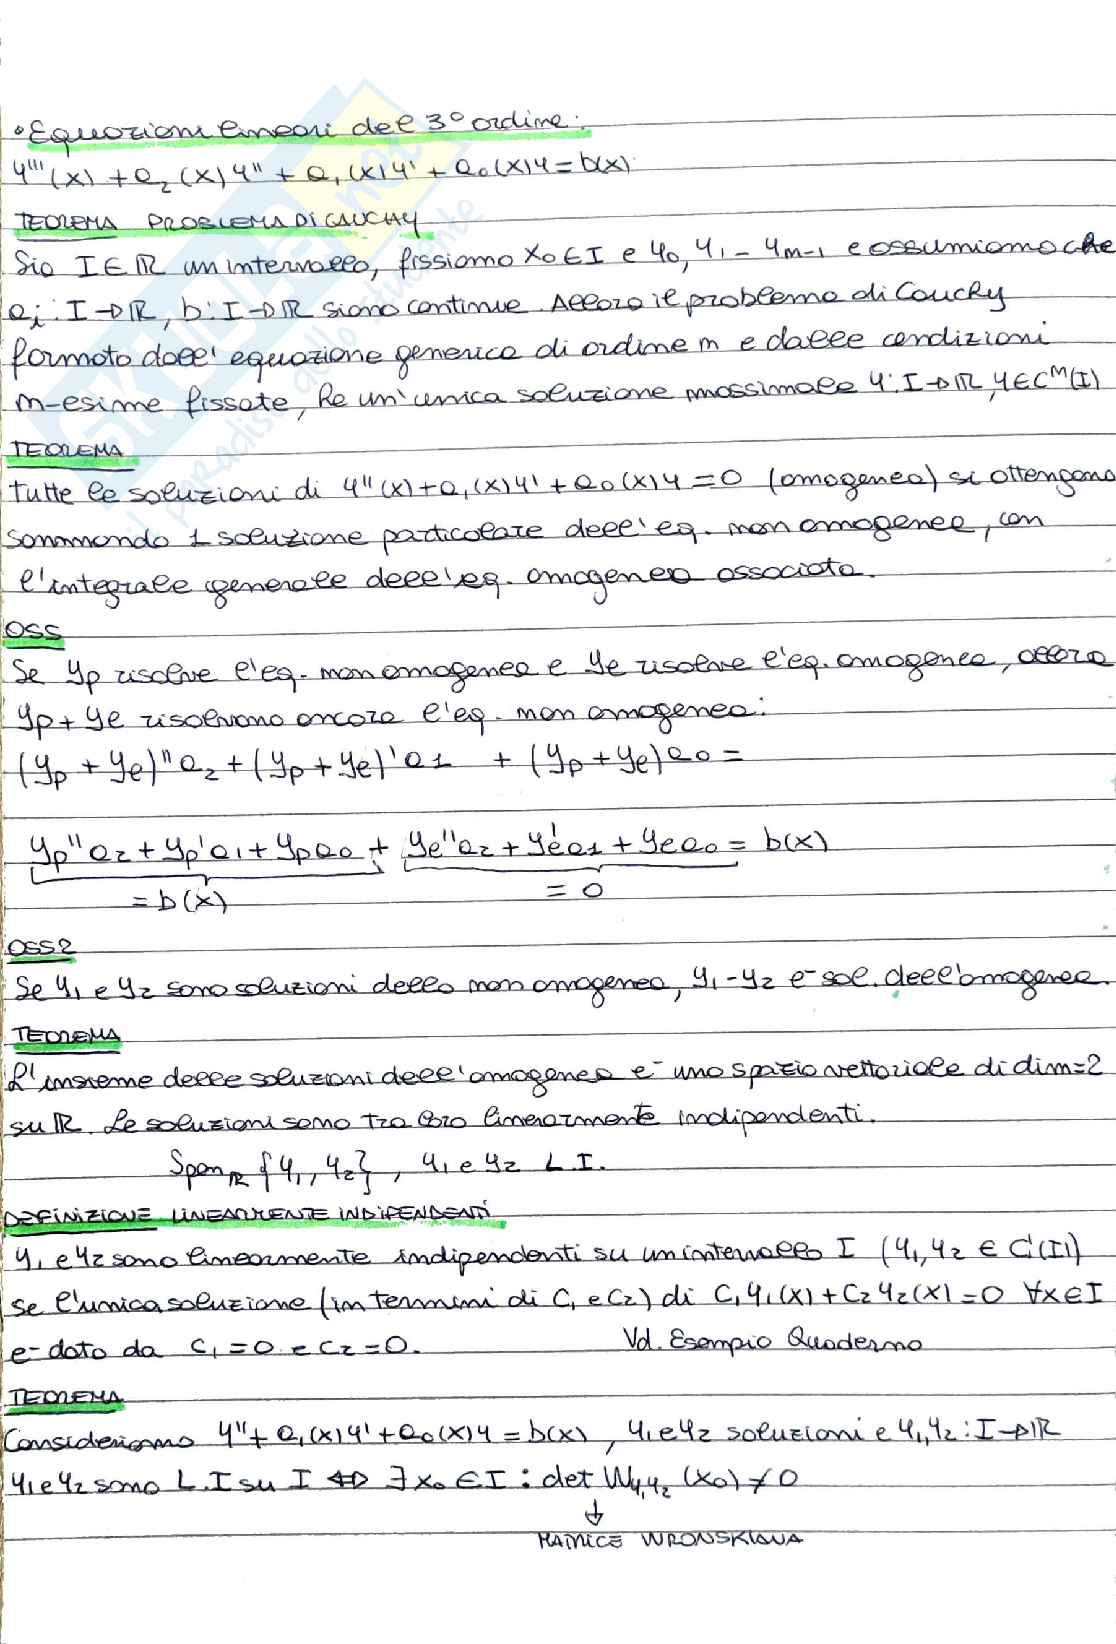 • Equazioni lineari del 3° ordine:
y'''(x) + a₂(x)y'' + a₁(x)y' + a₀(x)y = b(x)
TEOREMA PROBLEMA DI CAUCHY
Sia I ∈ ℝ un intervallo, fissiamo x₀ ∈ I e y₀, y₁ - yₙ₋₁ e assumiamo che
aᵢ: I → ℝ, b: I → ℝ siano continue. Allora il problema di Cauchy
formato dall'equazione generica di ordine n e dalle condizioni
n-esime fissate, ha un'unica soluzione massimale y: I → ℝ, y ∈ Cⁿ(I)
TEOREMA
tutte le soluzioni di y''(x) + a₁(x)y' + a₀(x)y = 0 (omogenea) si ottengono
sommando 1 soluzione particolare dell'eq. non omogenea, con
l'integrale generale dell'eq. omogenea associata.
OSS
Se yp risolve l'eq. non omogenea e ye risolve l'eq. omogenea, allora
yp + ye risolvono ancora l'eq. non omogenea:
(yp + ye)''a₂ + (yp + ye)'a1 + (yp + ye)a₀ =
yp''a₂ + yp'a₁ + ypa₀ + ye''a₂ + ye'a1 + yea₀ = b(x)
= b(x) = 0
OSS2
Se y₁ e y₂ sono soluzioni della non omogenea, y₁ - y₂ è sol. dell'omogenea.
TEOREMA
L'insieme delle soluzioni dell'omogenea è uno spazio vettoriale di dim=2
su ℝ. Le soluzioni sono tra loro linearmente indipendenti.
Span_ℝ {y₁, y₂}, y₁ e y₂ L.I.
DEFINIZIONE LINEARMENTE INDIPENDENTI
y₁ e y₂ sono linearmente indipendenti su un intervallo I (y₁, y₂ ∈ C¹(I))
se l'unica soluzione (in termini di C₁ e C₂) di C₁y₁(x) + C₂y₂(x) = 0 ∀x ∈ I
è data da C₁ = 0 e C₂ = 0. Vd. Esempio Quaderno
TEOREMA
Consideriamo y'' + a₁(x)y' + a₀(x)y = b(x), y₁ e y₂ soluzioni e y₁, y₂: I → ℝ
y₁ e y₂ sono L.I su I ⇔ ∃ x₀ ∈ I : det W_y₁y₂ (x₀) ≠ 0
↓
MATRICE WRONSKIANA
SKUOLA.net
il paradiso dello studente